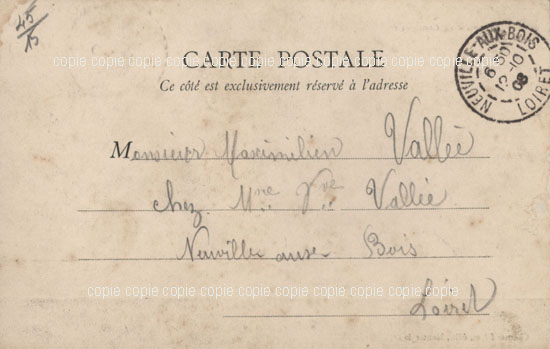 45/B
copie copie copie copie copie copie copie copie copie copie copie copie
CARTE POSTALE
Ce côté est exclusivement réservé à l'adresse
NEUVILLE-AUX-BOIS
12 -10
08
LOIRET
Monsieur Maximilien Vallée
chez Mme Vve Vallée
copie copie copie copie copie copie copie copie copie copie copie copie
Neuville aux Bois
Loiret
copie copie copie copie copie copie copie copie copie copie copie copie